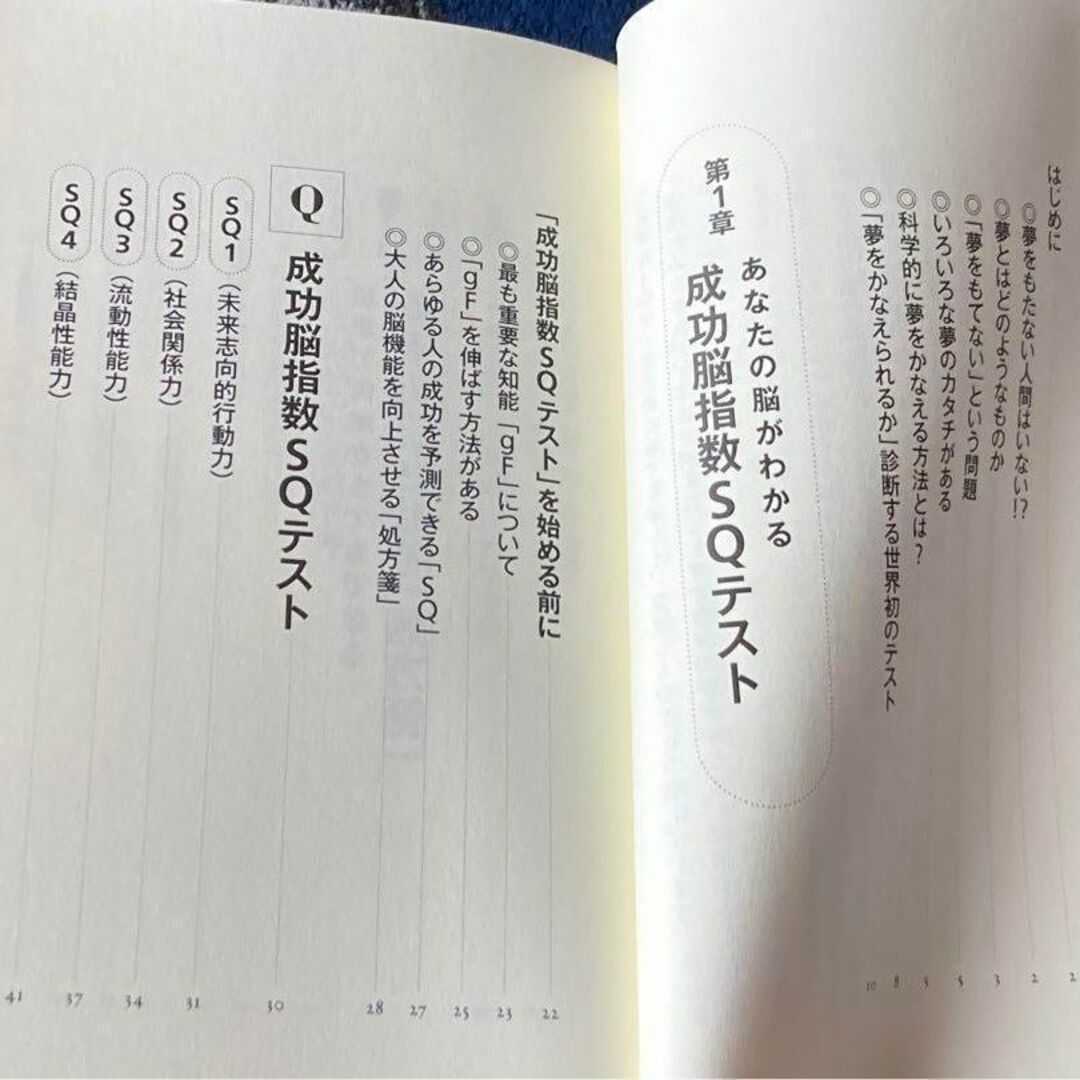 はじめに 2
◎夢をもたない人間はいない!? 2
◎夢とはどのようなものか 3
◎「夢をもてない」という問題 5
◎いろいろな夢のカタチがある 5
◎科学的に夢をかなえる方法とは? 8
◎「夢をかなえられるか」診断する世界初のテスト 10
第1章
あなたの脳がわかる
成功脳指数SQテスト
「成功脳指数SQテスト」を始める前に 22
◎最も重要な知能「gF」について 23
◎「gF」を伸ばす方法がある 25
◎あらゆる人の成功を予測できる「SQ」 27
◎大人の脳機能を向上させる「処方箋」 28
Q 成功脳指数SQテスト 30
SQ1(未来志向的行動力) 31
SQ2(社会関係力) 34
SQ3(流動性能力) 37
SQ4(結晶性能力) 41